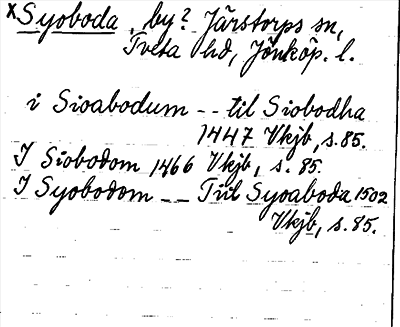 x Syoboda, by? Järstorps sn,
Tveta hd, Jönköp. l.
i Sioabodum -- til Siobodha
1447 Vkjb, s. 85.
I Siobodom 1466 Vkjb, s. 85.
I Syobodom -- Tiil Syoaboda 1502
Vkjb, s. 85.